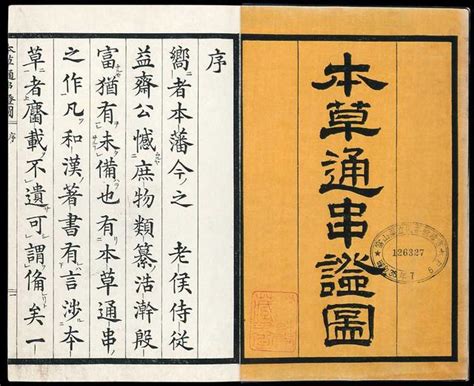 本草通串證圖
126327
序
嚮者本藩今之 老侯侍從
益齋公憾庶物類纂浩澣殷
富猶有未備也有本草通串
之作凡和漢著書有言涉本
草者臚載不遺可謂備矣一
本草通串證圖 序